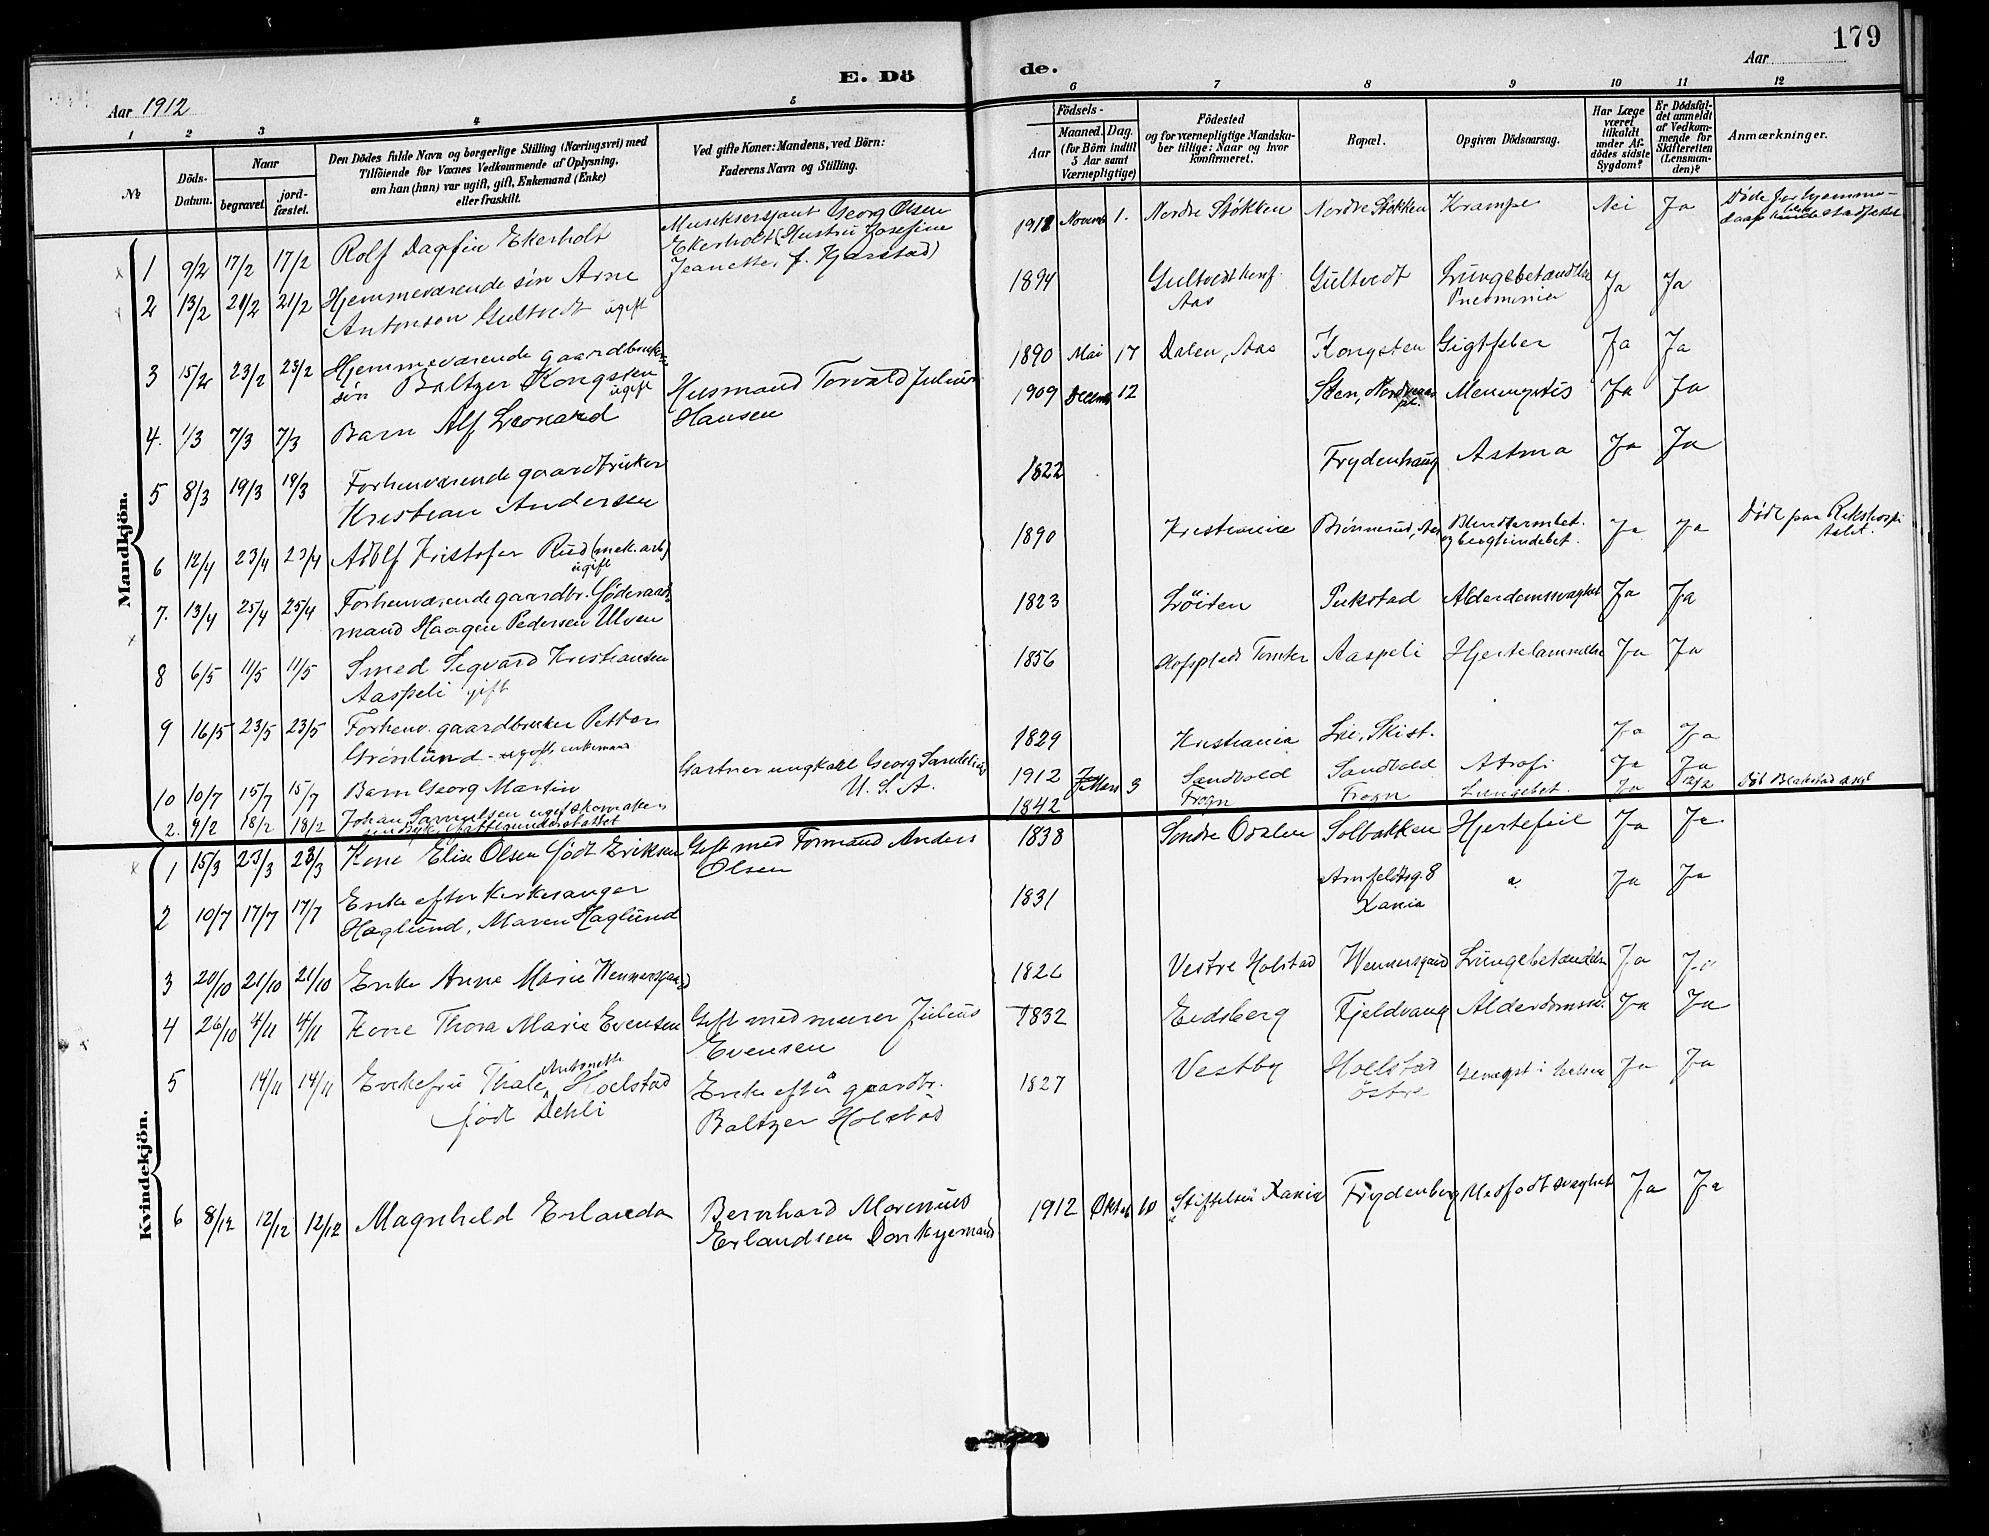 179
E. Dö
de.
Aar 1912
Aar
1 2 3 4 5 6 7 8 9 10 11 12
№
Döds-Datum.
Naar
begravet
jord-fæstet.
Den Dödes fulde Navn og borgerlige Stilling (Næringsvei) med
Tilföiende for Voxnes Vedkommende af Oplysning,
om han (hun) var ugift, gift, Enkemand (Enke)
eller fraskilt.
Ved gifte Koner: Mandens, ved Börn:
Faderens Navn og Stilling.
Födsels-
Aar
Maaned. Dag.
(for Börn indtil
5 Aar samt
Værnepligtige)
Födested
og for værnepligtige Mandska-
ber tillige: Naar og hvor
konfirmeret.
Bopæl.
Opgiven Dödsaarsag.
Har Læge
været
tilkaldt
under Af-
dödes sidste
Sygdom?
Er Dödsfal-
det anmeldt
af Vedkom-
mende for
Skifteretten
(Lensman-
den)?
Anmærkninger.
Mandkjön.
1 9/2 17/2 17/2 Rolf Dagfin Ekerholt
Musiksersjant Georg Olsen
Ekerholt (Hustru Josefine
Jeanette, f. Kjærstad)
Novemb 1. Nordre Støkken Nordre Støkken Krampe Nei Ja
Døde før hjemme-
daab stadfestet
2 13/2 21/2 21/2 Hjemmeværende søn Arne
Antonson Gultvedt ugift
1894 Gultvedt konf.
Aas
Gultvedt Lungebetændelse
Pneumonia
Ja Ja
3 15/2 23/2 23/2 Hjemmeværende gaardbruker
søn Baltzer Kongsten
ugift
1890 Mai 17 Dalen, Aas Kongsten Gigtfeber Ja Ja
4. 1/3 7/3 7/3 Barn Alf Leonard
Husmand Torvald Julius
Hansen
1909 Decemb 12 Sten, pl. Meningitis Ja Ja
5 8/3 19/3 19/3 Forhenværende gaardbruker
Kristian Andersen
1822 Frydenhaug Astma Ja Ja
6 12/4 23/4 23/4 Adolf Kristofer Rud (mek. arb)
ugift
1890 Kristiania Brønnerud, Aas Blindtarmbet.
og bughindebet.
Ja Ja Død paa Rikshospi
talet.
7. 13/4 25/4 25/4 Forhenværende gaardbr. Føderaads
mand Haagen Pedersen Ulven
1823 Löiten Pukstad Alderdomssvaghet Ja Ja
8 6/5 11/5 11/5 Smed Sigvard Kristiansen
Aaspeli gift
1856 Tomter Aaspeli Hjertelammelse Ja Ja
9 16/5 23/5 23/5 Forhenv. gaardbruker Petter
Grönlund - ugift enkemand
1829 Kristiania Lie, Skist. Ja Ja
10 10/7 15/7 15/7 Barn Georg Martin
Gartner ungkarl Georg Sandelius
U. S. A.
1912 Mars 3 Sandvold Sandvold Atrofi Ja Ja
2. 9/2 18/2 18/2 Johan Samuelsen ugift skomaker
1842 Frogn Frogn Lungebet. Ja Død Blakstad asyl
Kvindekjön.
1 15/3 23/3 23/3 Kone Elise Olsen født Eriksen
Gift med Formand Anders
Olsen
1838 Søndre Odalen Solbakken Hjertefeil Ja Ja
2 10/7 17/7 17/7 Enke efter kirkesanger
Haglund, Maren Haglund
1831 Armfeldtsg. 8
Xania
Ja Ja
3 20/10 21/10 21/10 Enke Anne Marie Wennersgaard
1826 Vestre Holstad Wennersgaard Lungebetændelse Ja Ja
4 26/10 4/11 4/11 Kone Thora Marie Evensen
Gift med murer Julius
Evensen
1832 Eidsberg Fjeldvang Alderdomssv. Ja Ja
5 14/11 14/11 Enkefru Thale Antonette Hoelstad
født Dehli
Enke efter gaardbr.
Baltzer Holstad
1827 Vestby Hoelstad
östre
i halsen Ja Ja
6 8/12 12/12 12/12 Magnhild Erlanda
Bernhard Marenius
Erlandsen Donkyemand
1912 Oktob 10 Stiftelsen Xania Frydenberg Medfødt svaghet Ja Ja